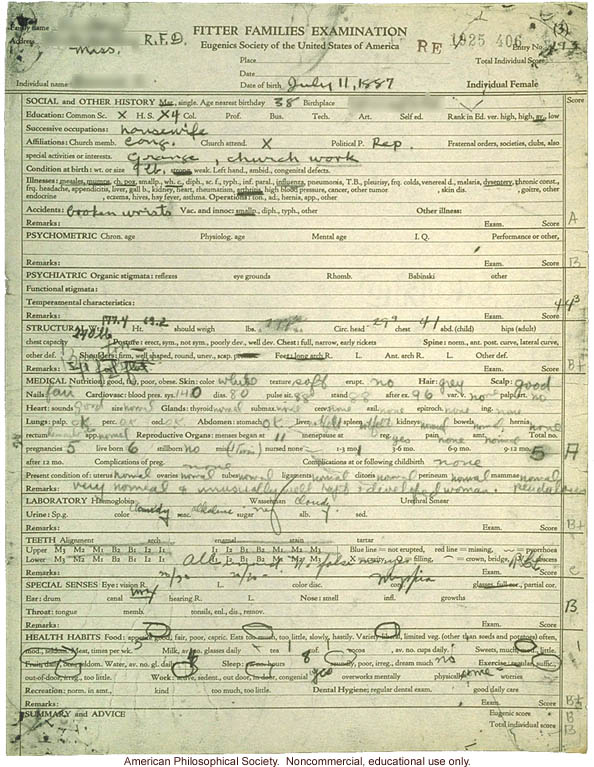 Family name
Address
Miss.
R.F.D.
FITTER FAMILIES EXAMINATION
Eugenics Society of the United States of America
RE 1925 406
(3)
Entry No.
Place
Total Individual Score
Date
Individual name
Date of birth, July 11, 1887
Individual Female
SOCIAL and OTHER HISTORY Mar., single. Age nearest birthday 38 Birthplace
Score
Education: Common Sc. X H. S. X4 Col. Prof. Bus. Tech. Art. Self ed. Rank in Ed. ver. high, high, av., low
Successive occupations: housewife
Affiliations: Church memb. Cong. Church attend. X Political P. Rep. Fraternal orders, societies, clubs, also
special activities or interests. Grange, church work
Condition at birth: wt. or size 9 lb. strong weak. Left hand., ambid., congenital defects.
Illnesses: measles, mumps, ch. pox, smallp., wh. c., diph., sc. f., typh., inf. paral., influenza, pneumonia, T.B., pleurisy, frq. colds, venereal d., malaria, dysentery, chronic const.,
frq. headache, appendicitis, liver, gall b., kidney, heart, rheumatism, arthritis, high blood pressure, cancer, other tumor , skin dis. , goitre, other
endocrine , eczema, hives, hay fever, asthma. Operations: ton., ad., hernia, app., other
Accidents: broken wrists Vac. and innoc: smallp., diph., typh., other Other illness:
Remarks: Exam. Score A
PSYCHOMETRIC Chron. age Physiolog. age Mental age I. Q. Performance or other,
Remarks: Exam. Score B
PSYCHIATRIC Organic stigmata: reflexes eye grounds Rhomb. Babinski other
Functional stigmata:
Temperamental characteristics:
Remarks: Exam. Score
STRUCTURAL Wt. 177.4 Ht. 62.2 should weigh lbs. Circ. head chest 41 abd. (child) hips (adult)
chest capacity Posture: erect, sym., not sym., poorly dev., well dev. Chest: full, narrow, early rickets Spine: norm., ant. post. curve, lateral curve,
other def. Shoulders: firm, well shaped, round, unev., scap. Feet: long arch R. L. Ant. arch R. L. Other def.
Remarks: Exam. Score B+
MEDICAL Nutrition: good, fair, poor, obese. Skin: color white texture soft erupt. no Hair: grey Scalp: good
Nails fair Cardiovasc: blood pres. sys. 140 dias. 80 pulse sit. 88 stand 88 after ex. 96 var. v. no palp. art. no
Heart: sounds good size normal Glands: thyroid normal submax. none cerv. none axil. none epitroch. none ing. none
Lungs: palp. ok perc. ok oscl. ok Abdomen: stomach ok liver spleen kidneys normal bowels, normal hernia
rectum app. normal Reproductive Organs: menses began at 11 menopause at reg. yes pain none amt. normal Total no.
pregnancies 5 live born 6 stillborn no mis. nursed none 1-3 mo 3-6 mo. 6-9 mo. 9-12 mo. 5 A
after 12 mo. Complications of preg. none Complications at or following childbirth none
Present condition of: uterus normal ovaries normal tubes normal ligaments normal clitoris normal perineum normal mammae normal
Remarks: very normal & unusually well kept & developed woman. Exam. Score
LABORATORY Haemoglobin Wasserman Urethral Smear
Urine: Sp.g. color cloudy reac. alkaline sugar neg alb. cloudy sed.
Remarks: Exam. Score B+
TEETH Alignment arch enamel stain tartar
Upper M3 M2 M1 B2 B1 C I2 I1 I1 I2 C B1 B2 M1 M2 M3 Blue line = not erupted, red line = missing, = pyorrhoea
Lower M3 M2 M1 B2 B1 C I2 I1 I1 I2 C B1 B2 M1 M2 M3 = filling, = crown, bridge,
Remarks: All false Exam. Score C
SPECIAL SENSES Eye: vision R. L. color disc. myopia glasses, full cor., partial cor.
Ear: drum canal wax hearing R. L. Nose: smell infl. growths
Throat: tongue memb. tonsils, enl., dis., remov.
Remarks: Exam. Score B
HEALTH HABITS Food: appetite good, fair, poor, capric. Eats too much, too little, slowly, hastily. Variety, liberal, limited veg. (other than seeds and potatoes) often,
mod., seldom. Meat, times per wk. 5 Milk, av. no. glasses daily tea 1 cof. av. no. cups daily. Sweets, much, mod., little.
Fruit, daily, often, seldom. Water, av. no. gl. daily Sleep: av. hours 8 soundly, poor, irreg., dream much no Exercise: regular, suffic.,
out-of-door, irreg., too little. Work: active, sedent., out door, in door, congenial yes overworks mentally physically some worries
Recreation: norm. in amt., kind too much, too little. Dental Hygiene: regular dental exam. good daily care
Remarks: Exam. Score B+
SUMMARY and ADVICE Eugenic score B
Total individual score B
American Philosophical Society. Noncommercial, educational use only.